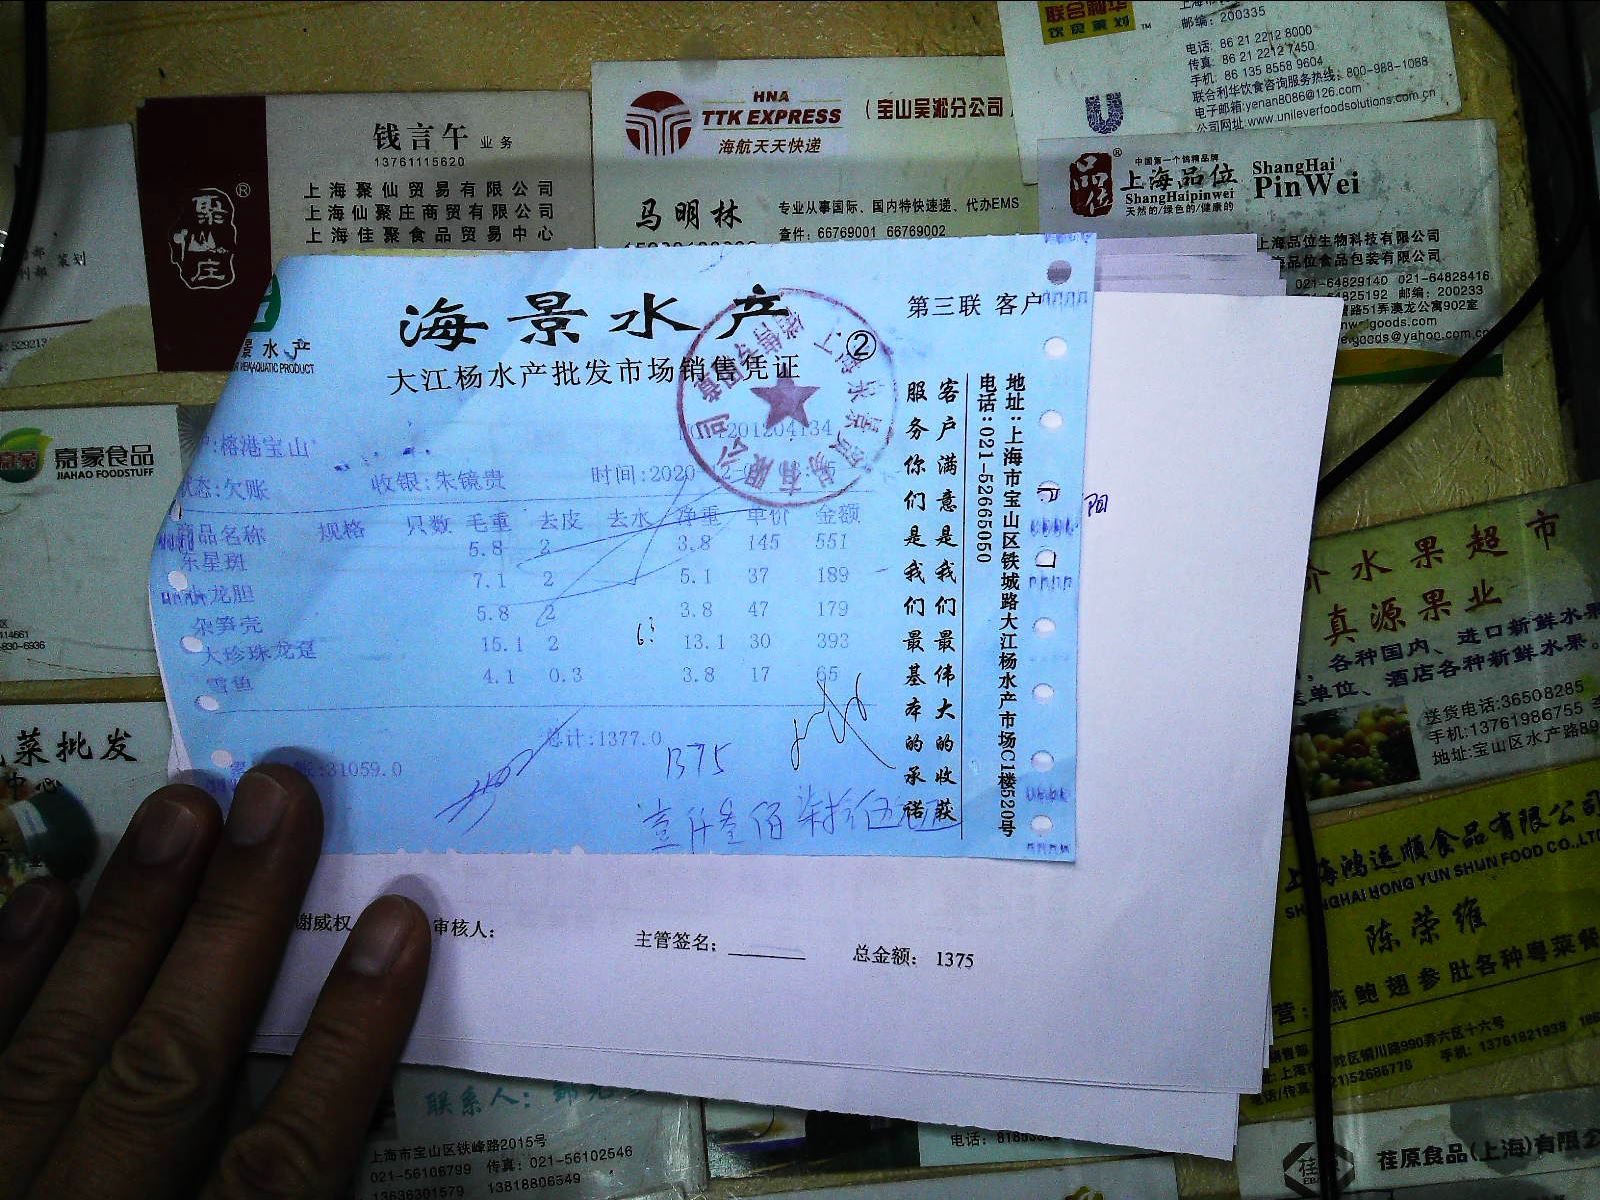 钱言午 业务
13761115620
上海聚仙贸易有限公司
上海仙聚庄商贸有限公司
上海佳聚食品贸易中心
聚仙庄®
HNA
TTK EXPRESS
海航天天快递
(宝山吴淞分公司
马明林
专业从事国际、国内特快速递、代办EMS
查件: 66769001 66769002
联合利华
饮食策划™
邮编: 200335
电话: 86 21 2212 8000
传真: 86 21 2212 7450
手机: 86 135 8558 9604
联合利华饮食咨询服务热线: 800-988-1088
电子邮箱:yenan8086@126.com
公司网址:www.unileverfoodsolutions.com.cn
品位®
中国第一个鸽精品牌
上海品位
ShangHaipinwei
天然的/绿色的/健康的
ShangHai
PinWei
上海品位生物科技有限公司
海品位食品包装有限公司
021-64829140 021-64828416
64825192 邮编: 200233
路51弄澳龙公寓902室
goods@yahoo.com.cn
嘉豪食品
JIAHAO FOODSTUFF
景水产
AQUATIC PRODUCT
海景水产
大江杨水产批发市场销售凭证
第三联 客户
②
:榕港宝山
1201204134
状态:欠账
收银:朱镜贵
时间:2020
商品名称 规格 只数 毛重 去皮 去水 净重 单价 金额
东星斑 5.8 2 3.8 145 551
龙胆 7.1 2 5.1 37 189
杂笋壳 5.8 2 3.8 47 179
大珍珠龙趸 15.1 2 13.1 30 393
雪鱼 4.1 0.3 3.8 17 65
总计:1377.0
31059.0
1375
壹仟叁佰柒拾伍元
客户满意是我们最伟大的收获
服务你们是我们最基本的承诺
地址:上海市宝山区铁城路大江杨水产市场C1楼520号
电话:021-52665050
阳
谢威权
审核人:
主管签名:
总金额: 1375
菜批发
中心
水果超市
真源果业
各种国内、进口新鲜水果
单位、酒店各种新鲜水果。
送货电话:36508285
手机:13761986755
地址:宝山区水产路89
上海鸿运顺食品有限公司
SHANGHAI HONG YUN SHUN FOOD CO.,LTD
陈荣雍
营: 燕鲍翅参肚各种粤菜餐
区铜川路990弄六区十六号
电话/传真:(021)52686776 手机: 13761821938
联系人:
上海市宝山区铁峰路2015号
021-56106799 传真: 021-56102546
13636301579 13818806549
电话:
荏原食品(上海)有限公